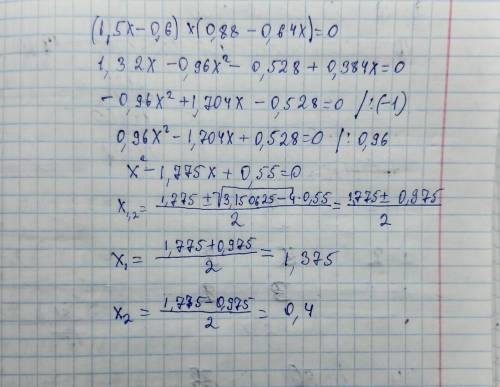 (1,5x-0,6) x (0,88 - 0,64x)=0
1,32x - 0,96x² - 0,528 + 0,384x=0
- 0,96x² + 1,704x - 0,528=0 /:(-1)
0,96x² - 1,704x + 0,528=0 /: 0,96
x² - 1,775x + 0,55=0
x₁,₂= (1,775 ± √(3,150625 - 4·0,55))/2 = (1,775 ± 0,975)/2
x₁ = (1,775+0,975)/2 = 1,375
x₂ = (1,775-0,975)/2 = 0,4